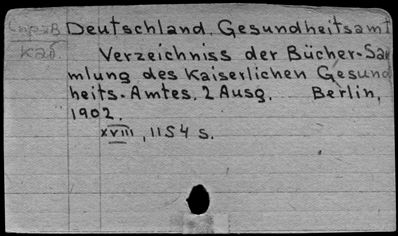 Deutschland, Gesundheitsamt
Каб. Verzeichniss der Bücher-Sam
mlung des Kaiserlichen Gesund
heits-Amtes. 2 Ausg. Berlin,
1902.
XVIII, 1154 s.